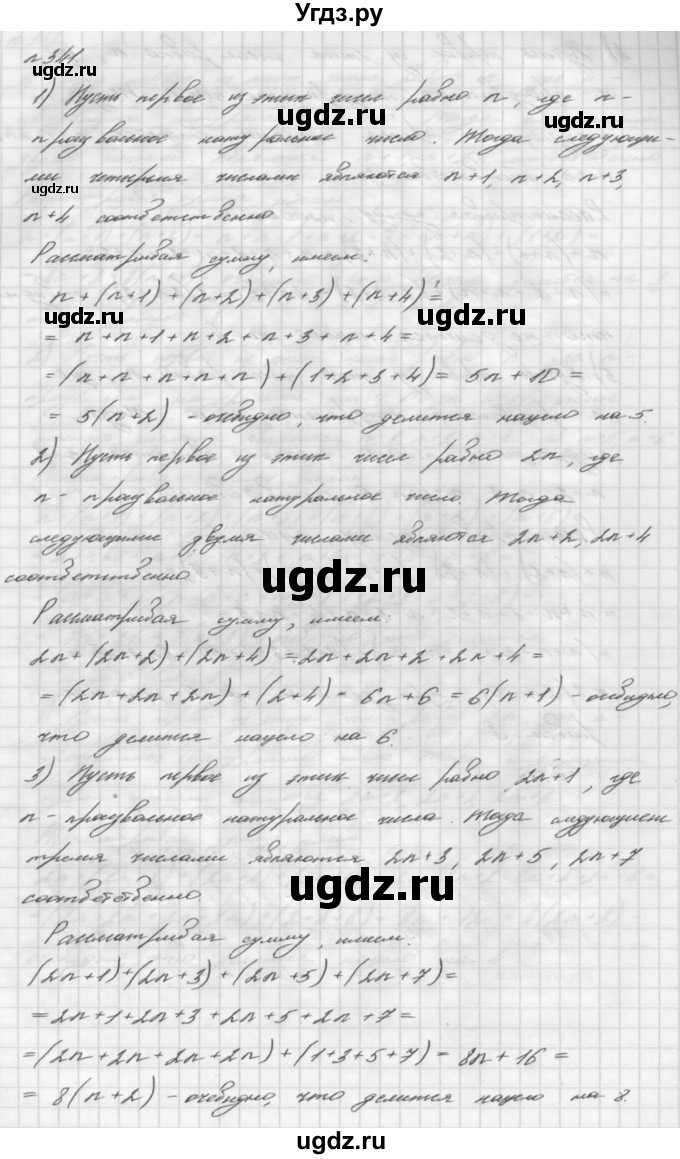 Угдз.ру
n 341.
1) Пусть первое из этих чисел равно n, где n -
произвольное натуральное число. Тогда следующи-
ми четырьмя числами являются n+1, n+2, n+3,
n+4 соответственно.
Рассматривая сумму, имеем:
n + (n+1) + (n+2) + (n+3) + (n+4) =
= n + n + 1 + n + 2 + n + 3 + n + 4 =
= (n + n + n + n + n) + (1+2+3+4) = 5n + 10 =
= 5(n+2) - очевидно, что делится нацело на 5.
2) Пусть первое из этих чисел равно 2n, где
n - произвольное натуральное число. Тогда
следующими двумя числами являются 2n+2, 2n+4
соответственно.
Рассматривая сумму, имеем:
2n + (2n+2) + (2n+4) = 2n + 2n + 2 + 2n + 4 =
= (2n + 2n + 2n) + (2+4) = 6n + 6 = 6(n+1) - очевидно,
что делится нацело на 6.
3) Пусть первое из этих чисел равно 2n+1, где
n - произвольное натуральное число. Тогда следующими
тремя числами являются 2n+3, 2n+5, 2n+7
соответственно.
Рассматривая сумму, имеем:
(2n+1) + (2n+3) + (2n+5) + (2n+7) =
= 2n + 1 + 2n + 3 + 2n + 5 + 2n + 7 =
= (2n + 2n + 2n + 2n) + (1+3+5+7) = 8n + 16 =
= 8(n+2) - очевидно, что делится нацело на 8.
ugdz.ru
ugdz.ru
ugdz.ru
ugdz.ru
ugdz.ru
ugdz.ru
ugdz.ru
ugdz.ru